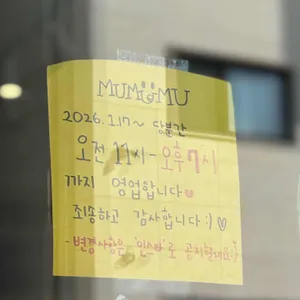 MUMUMU
2026.1.17~ 당분간
오전 11시-오후7시
까지 영업합니다♥
죄송하고 감사합니다:)♡
-변경사항은 '인스타'로 공지할게요:)